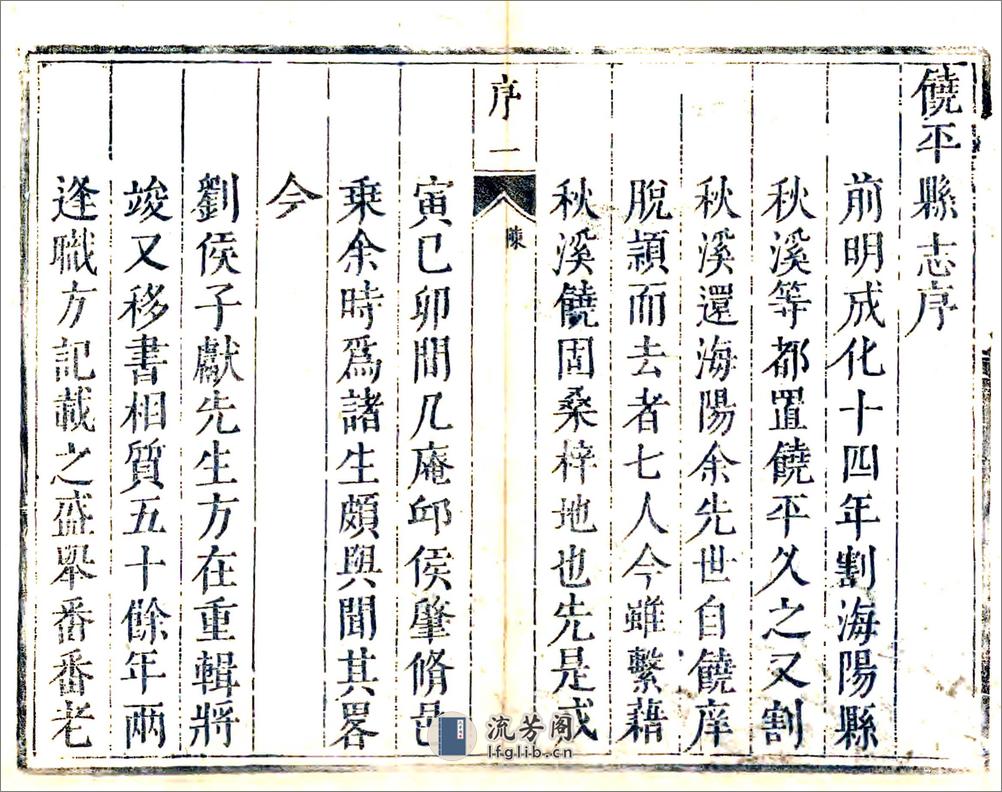 饒平縣志序
前明成化十四年割海陽縣
秋溪等都置饒平久之又割
秋溪還海陽余先世自饒庠
脫穎而去者七人今雖繫藉
秋溪饒固桑梓地也先是戊
序一
陳
寅已卯間几庵邱侯肇脩邑
乗余時爲諸生頗與聞其畧
今
劉侯子獻先生方在重輯將
竣又移書相質五十餘年兩
逢職方記載之盛舉番番老
流芳阁
lfglib.cn